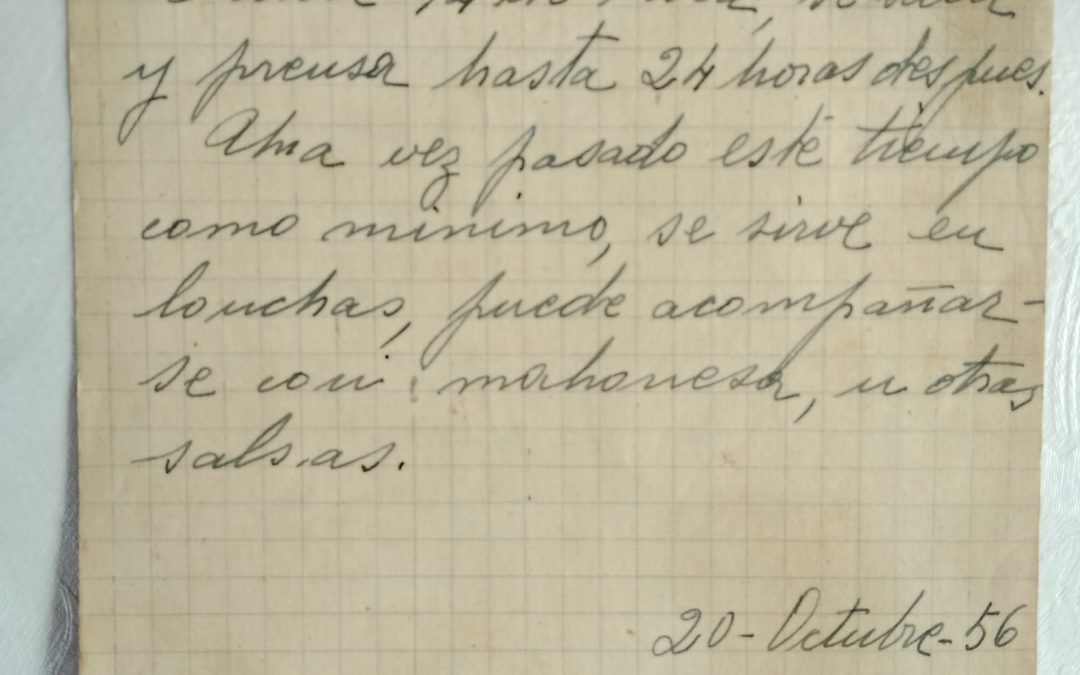 y prensa hasta 24 horas despues.
Una vez pasado este tiempo
como minimo, se sirve en
lonchas, puede acompañar-
se con mahonesa, u otras
salsas.
20-Octubre-56